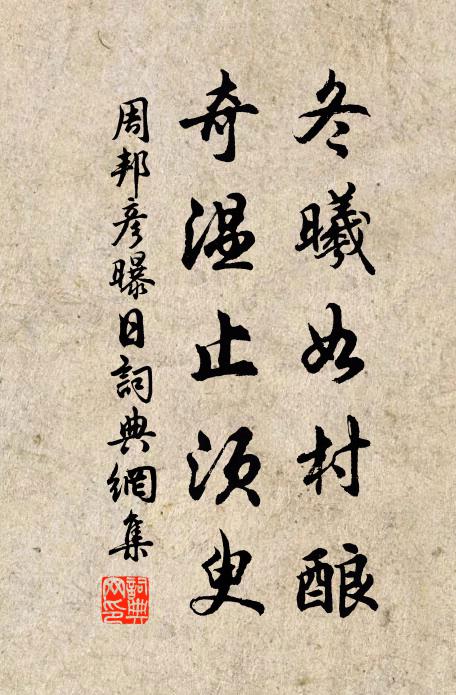 冬曦如村酿
奇温止须臾
周邦彦曝日詞典網集
詞典網印